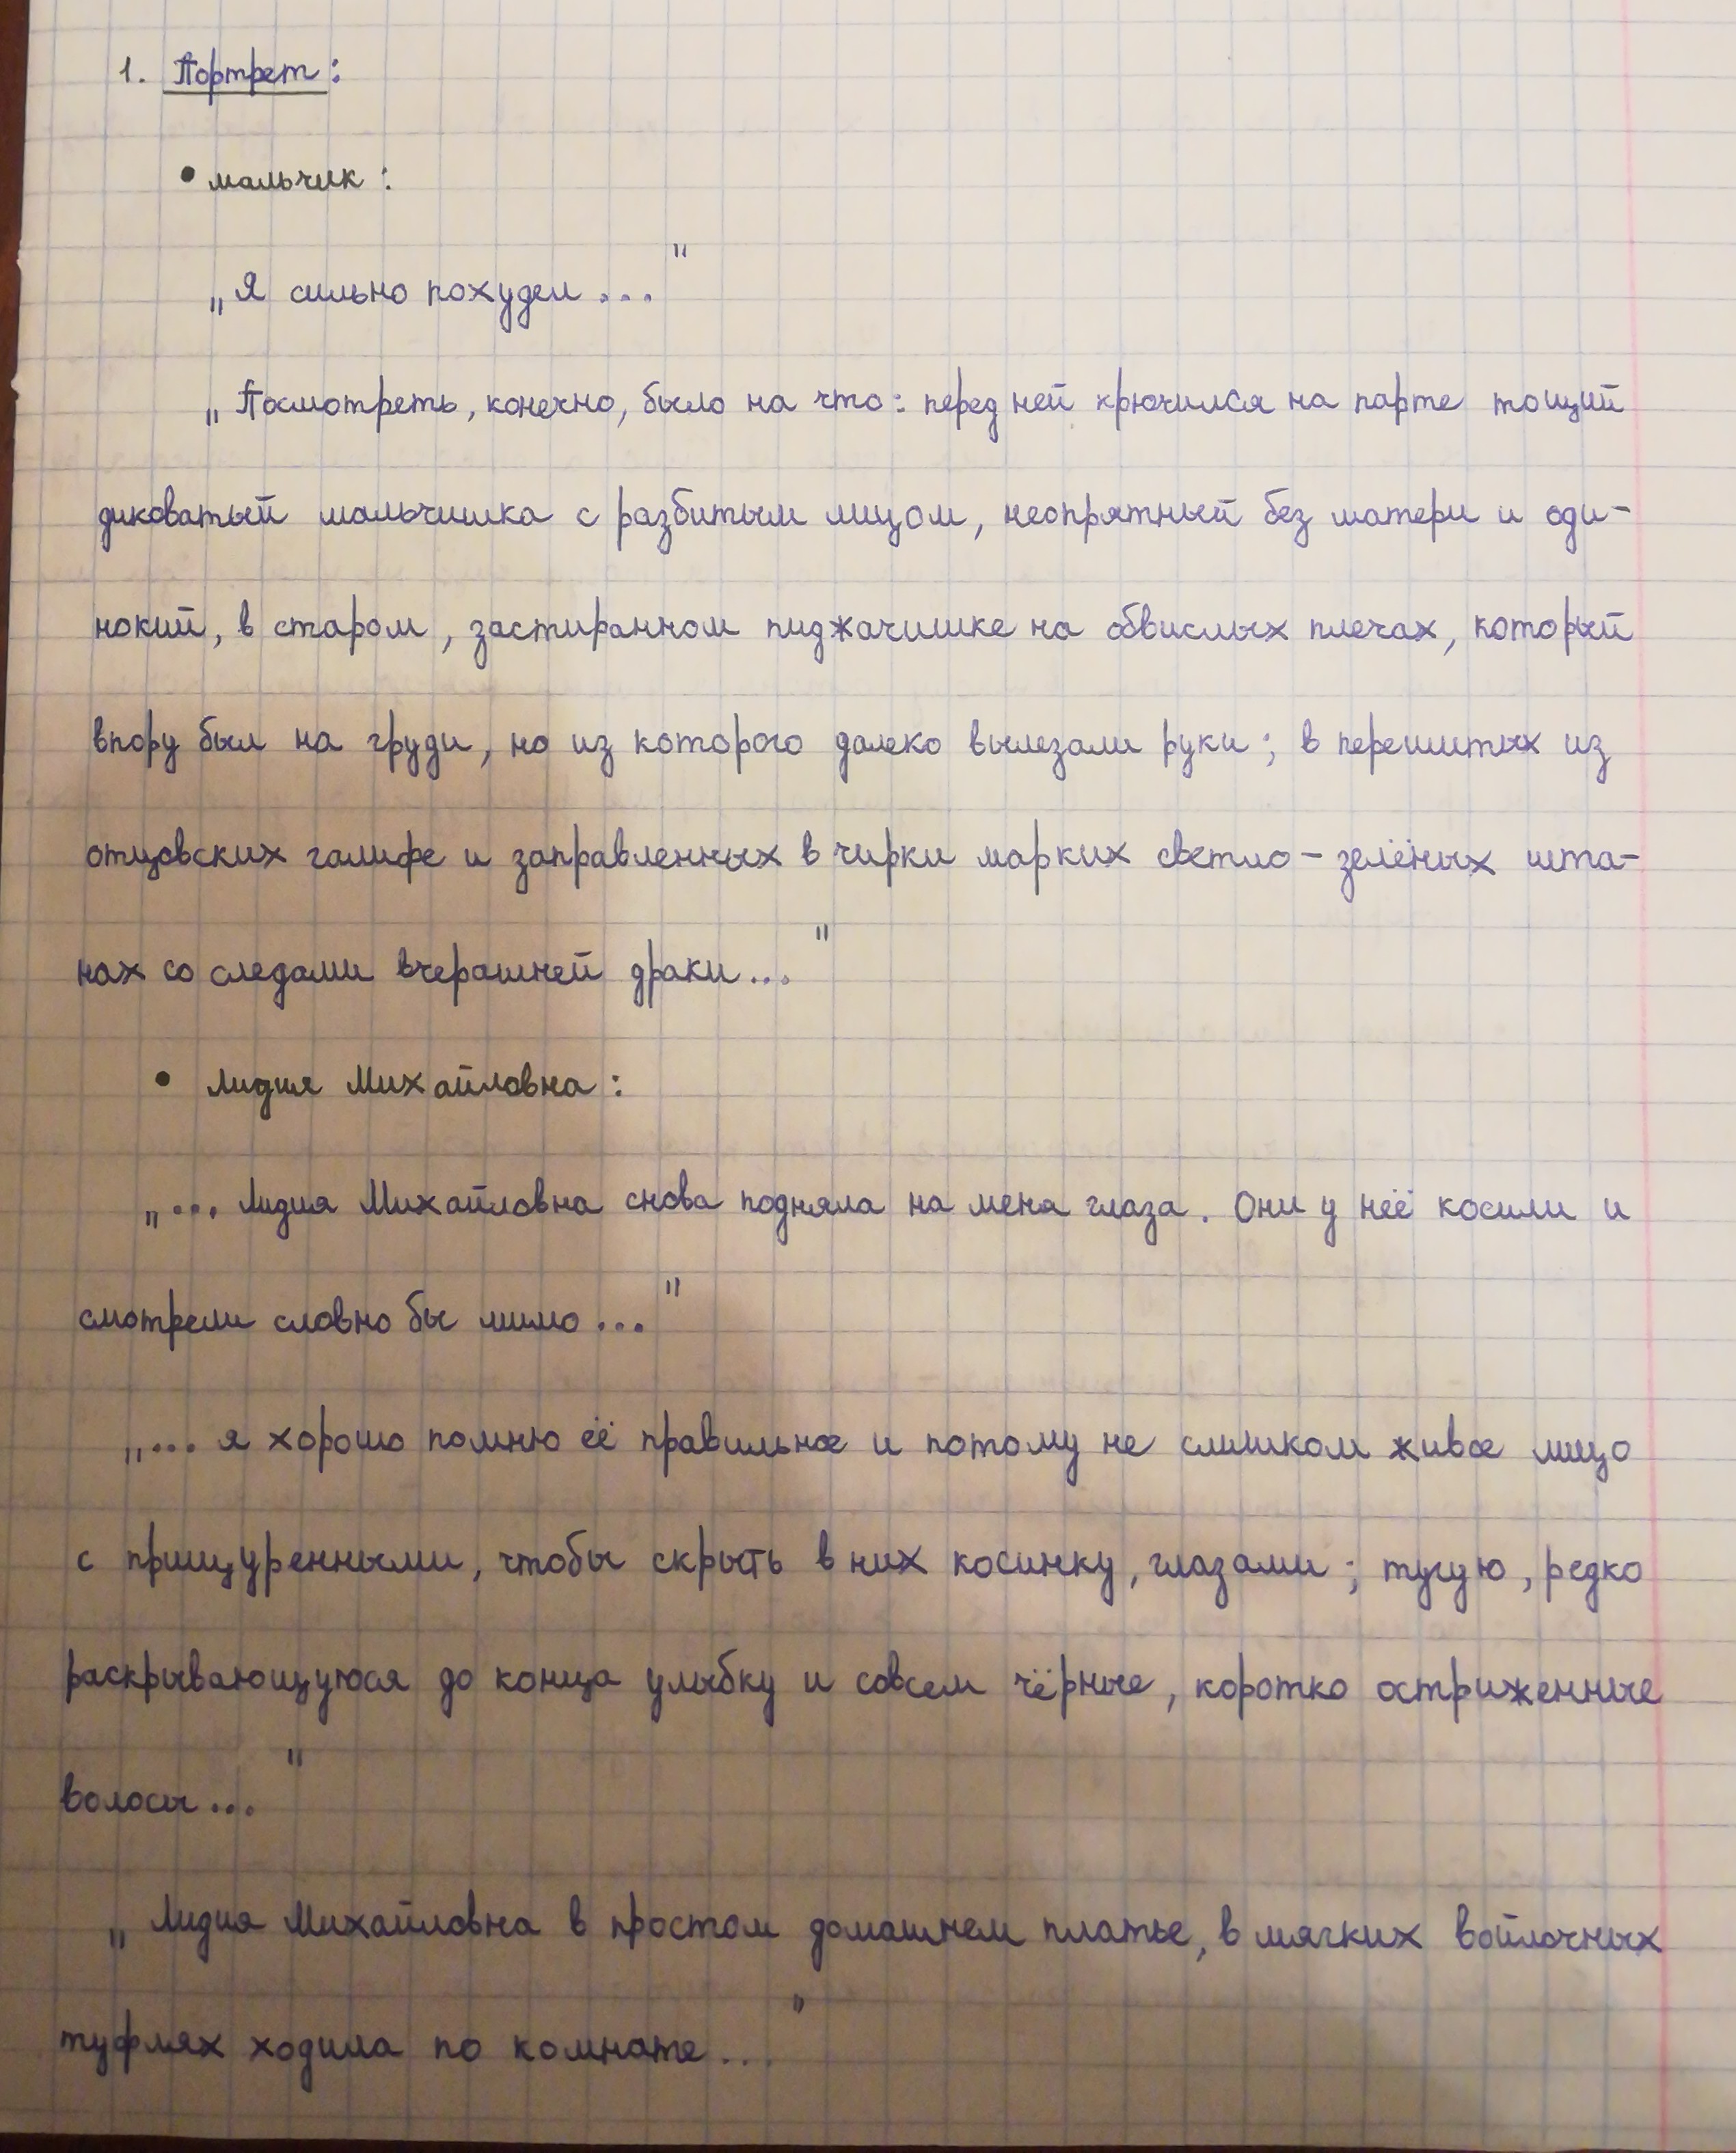 1. Портрет:
• мальчик:
„Я сильно похудел..."
„Посмотреть, конечно, было на что: перед ней крючился на парте тощий
диковатый мальчишка с разбитым лицом, неопрятный без матери и оди-
нокий, в старом, застиранном пиджачишке на обвислых плечах, который
впору был на груди, но из которого далеко вылезали руки; в перешитых из
отцовских галифе и заправленных в чирки марких светло-зелёных шта-
нах со следами вчерашней драки..."
• Лидия Михайловна:
„... Лидия Михайловна снова подняла на меня глаза. Они у неё косили и
смотрели словно бы мимо..."
„... я хорошо помню её правильное и потому не слишком живое лицо
с прищуренными, чтобы скрыть в них косинку, глазами; тугую, редко
раскрывающуюся до конца улыбку и совсем чёрные, коротко остриженные
волосы..."
„Лидия Михайловна в простом домашнем платье, в мягких войлочных
туфлях ходила по комнате..."